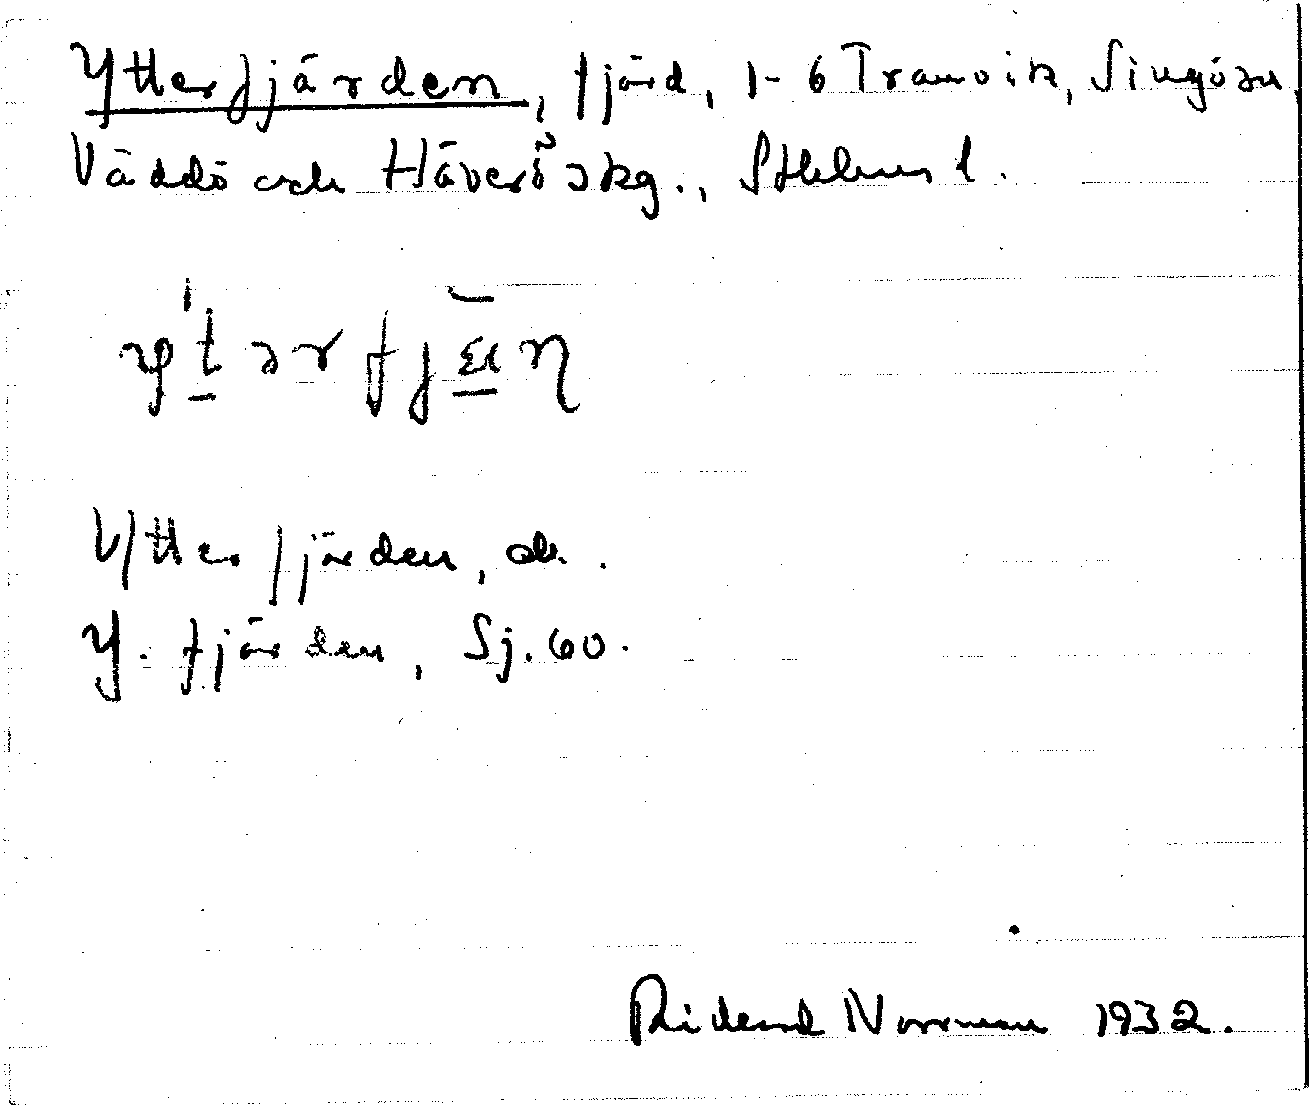 Ytterfjärden, fjärd, 1-6 Tranvik, Singö sn,
Väddö och Häverö skg., Sthlms l.
y't̲ərfjǣ̲η
Ytterfjärden, ek.
Y. fjärden, Sj. 60.
Rickard Norrman 1932.